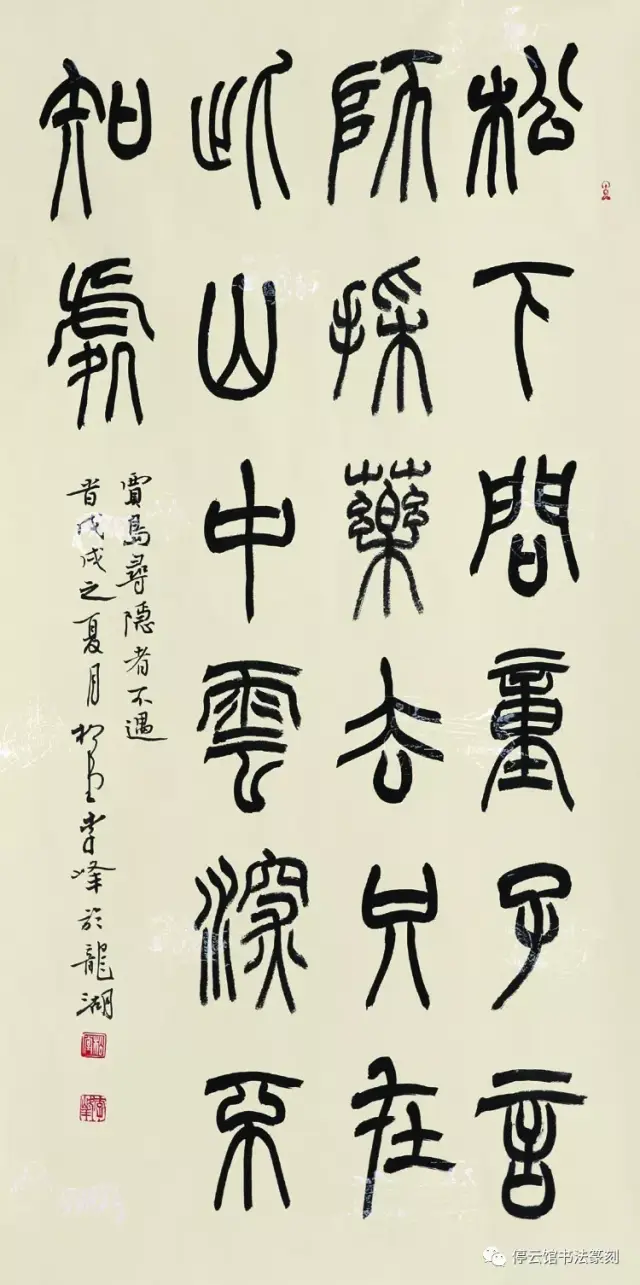 松下問童子言
師採藥去只在
此山中雲深不
知處
賈島尋隱者不遇
旹戊戌之夏月松李峰於龍湖
停云馆书法篆刻